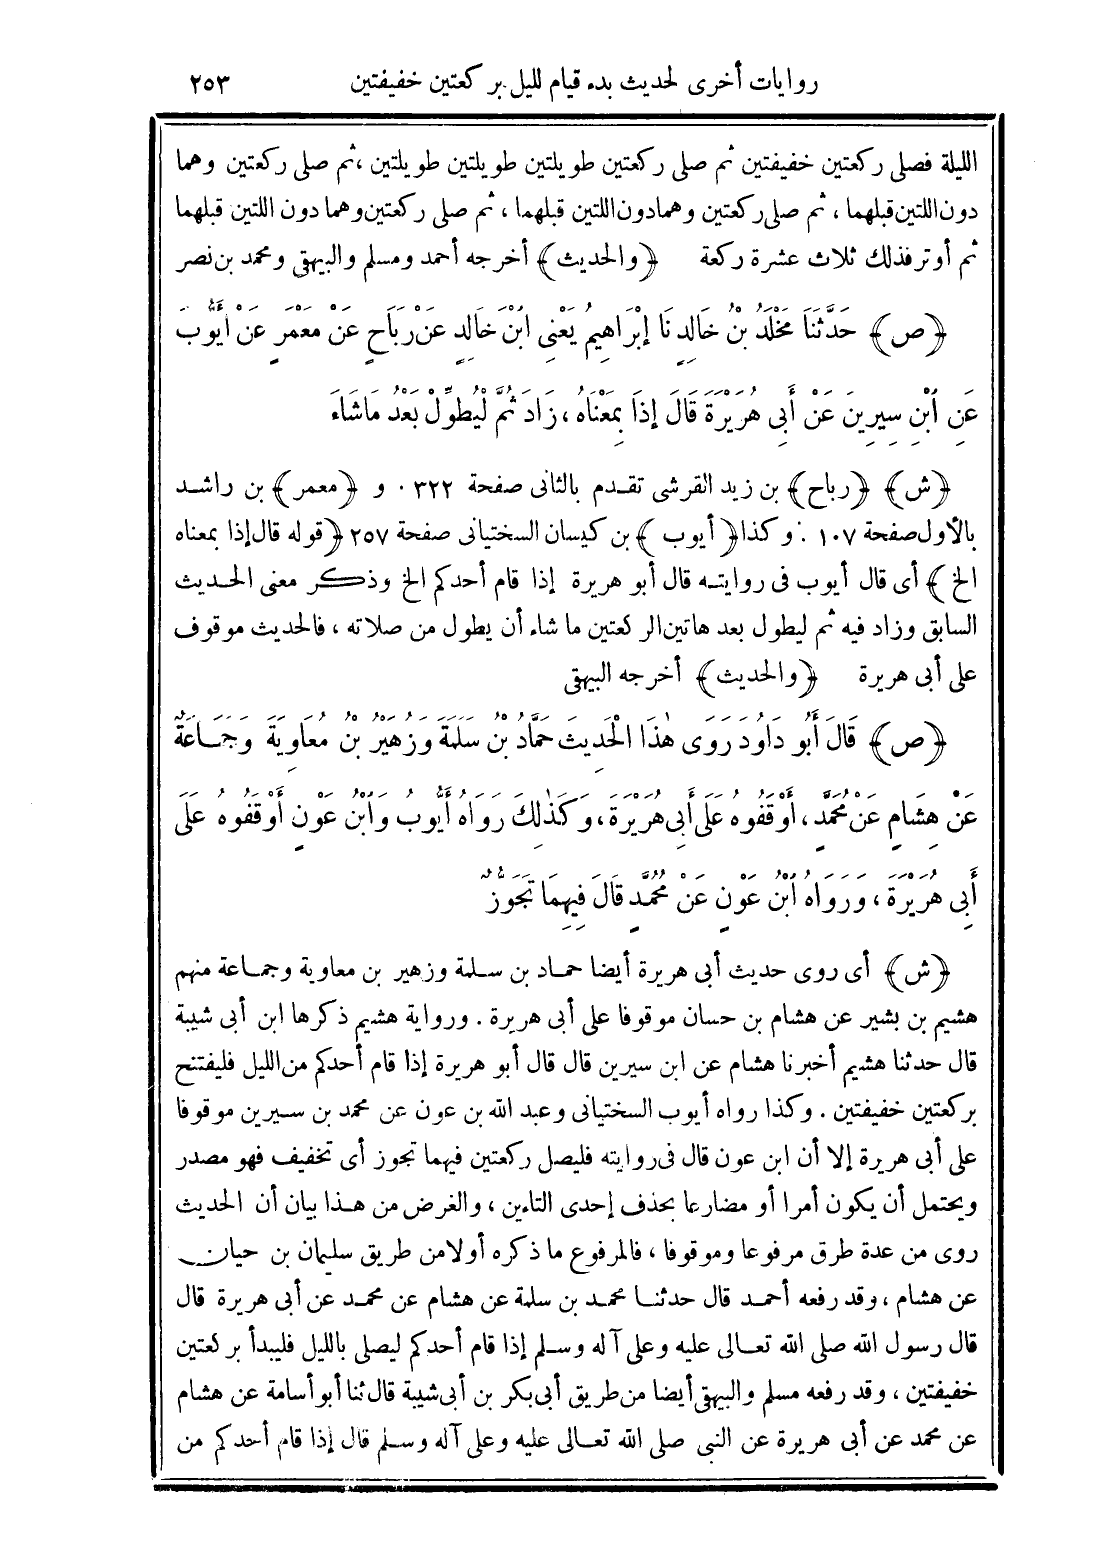 روايات أخرى لحديث بدء قيام لليل بركعتين خفيفتين ٢٥٣
الليلة فصلى ركعتين خفيفتين ثم صلى ركعتين طويلتين طويلتين طويلتين ، ثم صلى ركعتين وهما
دون اللتين قبلهما ، ثم صلى ركعتين وهما دون اللتين قبلهما ، ثم صلى ركعتين وهما دون اللتين قبلهما
ثم أوتر فذلك ثلاث عشرة ركعة ﴿والحديث﴾ أخرجه أحمد ومسلم والبيهقى ومحمد بن نصر
﴿ص﴾ حَدَّثَنَا مَخْلَدُ بْنُ خَالِدٍ نَا إِبْرَاهِيمُ يَعْنِى ابْنَ خَالِدٍ عَنْ رَبَاحٍ عَنْ مَعْمَرٍ عَنْ أَيُّوبَ
عَنِ ابْنِ سِيرِينَ عَنْ أَبِى هُرَيْرَةَ قَالَ إِذَا بِمَعْنَاهُ ، زَادَ ثُمَّ لْيُطَوِّلْ بَعْدُ مَا شَاءَ
﴿ش﴾ ﴿رباح﴾ بن زيد القرشى تقدم بالثانى صفحة ٣٢٢ . و ﴿معمر﴾ بن راشد
بالأول صفحة ١٠٧ . وكذا ﴿أيوب﴾ بن كيسان السختيانى صفحة ٢٥٧ ﴿قوله قال إذا بمعناه
الخ﴾ أى قال أيوب فى روايته قال أبو هريرة إذا قام أحدكم الخ وذكر معنى الحديث
السابق وزاد فيه ثم ليطول بعد هاتين الركعتين ما شاء أن يطول من صلاته ، فالحديث موقوف
على أبى هريرة ﴿والحديث﴾ أخرجه البيهقى
﴿ص﴾ قَالَ أَبُو دَاوُدَ رَوَى هٰذَا الْحَدِيثَ حَمَّادُ بْنُ سَلَمَةَ وَزُهَيْرُ بْنُ مُعَاوِيَةَ وَجَمَاعَةٌ
عَنْ هِشَامٍ عَنْ مُحَمَّدٍ ، أَوْقَفُوهُ عَلَى أَبِى هُرَيْرَةَ ، وَكَذٰلِكَ رَوَاهُ أَيُّوبُ وَابْنُ عَوْنٍ أَوْقَفُوهُ عَلَى
أَبِى هُرَيْرَةَ ، وَرَوَاهُ ابْنُ عَوْنٍ عَنْ مُحَمَّدٍ قَالَ فِيهِمَا تَجَوُّزٌ
﴿ش﴾ أى روى حديث أبى هريرة أيضا حماد بن سلمة وزهير بن معاوية وجماعة منهم
هشيم بن بشير عن هشام بن حسان موقوفا على أبى هريرة . ورواية هشيم ذكرها ابن أبى شيبة
قال حدثنا هشيم أخبرنا هشام عن ابن سيرين قال قال أبو هريرة إذا قام أحدكم من الليل فليفتتح
بركعتين خفيفتين . وكذا رواه أيوب السختيانى وعبد الله بن عون عن محمد بن سيرين موقوفا
على أبى هريرة إلا أن ابن عون قال فى روايته فليصل ركعتين فيهما تجوز أى تخفيف فهو مصدر
ويحتمل أن يكون أمرا أو مضارعا بحذف إحدى التاءين ، والغرض من هذا بيان أن الحديث
روى من عدة طرق مرفوعا وموقوفا ، فالمرفوع ما ذكره أولا من طريق سليمان بن حيان
عن هشام ، وقد رفعه أحمد قال حدثنا محمد بن سلمة عن هشام عن محمد عن أبى هريرة قال
قال رسول الله صلى الله تعالى عليه وعلى آله وسلم إذا قام أحدكم ليصلى بالليل فليبدأ بركعتين
خفيفتين ، وقد رفعه مسلم والبيهقى أيضا من طريق أبى بكر بن أبى شيبة قال ثنا أبو أسامة عن هشام
عن محمد عن أبى هريرة عن النبى صلى الله تعالى عليه وعلى آله وسلم قال إذا قام أحدكم من